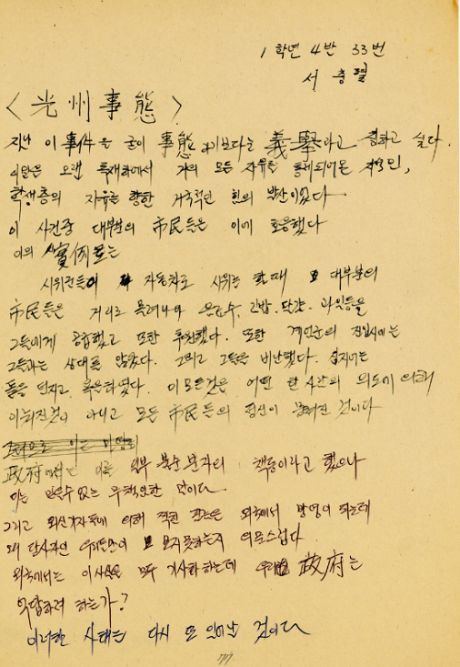 1 학년 4반 33번
서 충렬
〈光州事態〉
지난 이 事件을 굳이 事態 라기보다는 義擧라고 칭하고 싶다.
이것은 오랜 독재하에서 거의 모든 자유를 통제되어온 지식인,
학생층의 자유를 향한 거국적인 힘의 발산이었다
이 사건중 대부분의 市民들은 이에 호응했다
이의 實例로는
시위전들이 자동차로 시위를 할때 대부분의
市民들은 거리로 몰려나와 음료수, 김밥, 달걀, 과잇등을
그들에게 공급했고 또한 후원했다. 또한 계엄군의 진입시에는
그들과는 상대를 않았다. 그리고 그들을 비난했다. 심지어는
돌을 던지고 폭언하였다. 이 모든것은 어떤 한 사람의 의도에 의해
이뤄진것이 아니고 모든 市民들의 정신이 뭉쳐진 것이다
政府에서는 이를 일부 불순분자의 책동이라고 했으나
이는 믿을수 없는 무책임한 말이다
그리고 외신기자들에 의해 찍힌 필름은 외국에서 방영이 되는데
왜 당사자인 우리들만이 보지못하는지 의문스럽다
외국에서는 이사실을 모두 기사화하는데 우리 政府는
억압하려 하는가?
이러한 사태는 다시 또 일어날 것이다